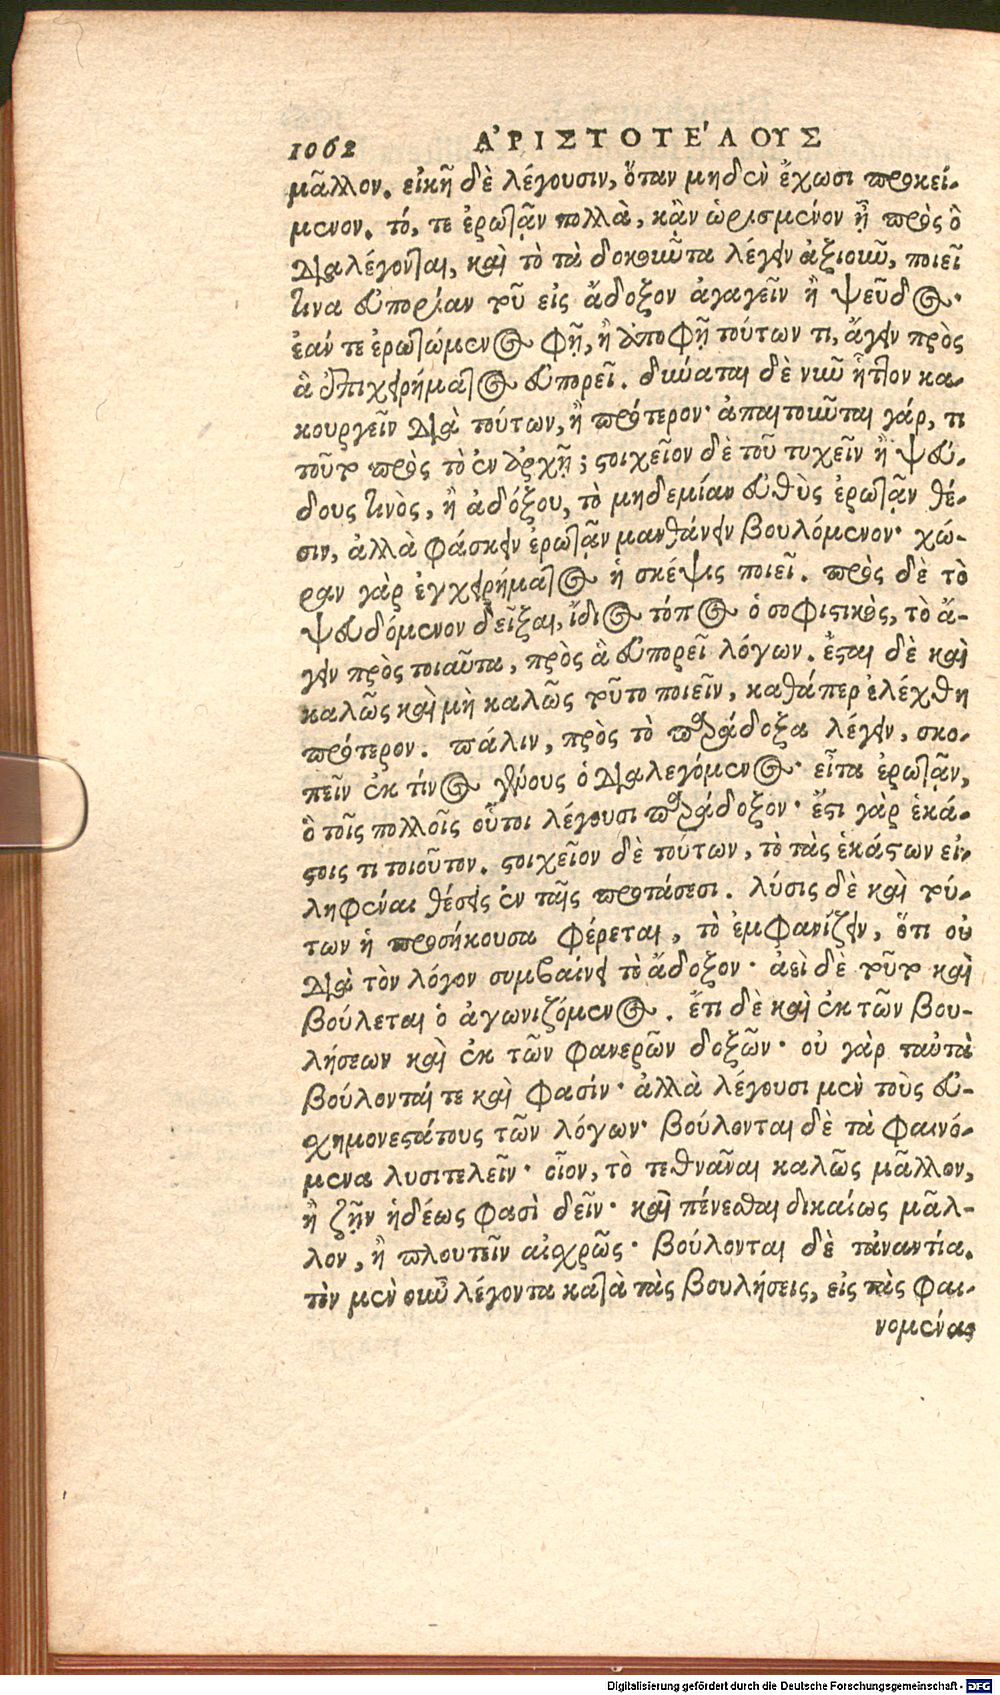 1062 ΑʼΡΙΣΤΟΤΕʹΛΟΥΣ
μᾶλλον. εἰκῆ δὲ λέγουσιν, ὅταν μηδὲν ἔχωσι προκεί-
μενον. τό, τε ἐρωτᾶν πολλὰ, κᾂν ὡρισμένον ᾖ πρὸς ὃ
διαλέγονται, καὶ τὸ τὰ δοκοῦντα λέγειν ἀξιοῦν, ποιεῖ
τινα εὐπορίαν τοῦ εἰς ἄδοξον ἀγαγεῖν ἢ ψεῦδος·
ἐάν τε ἐρωτώμενος φῇ, ἢ ἀποφῇ τούτων τι, ἄγειν πρὸς
ἃ ἐπιχειρήματος εὐπορεῖ. δύναται δὲ νῦν ἧττον κα-
κουργεῖν διὰ τούτων, ἢ πρότερον· ἀπαιτοῦνται γάρ, τι
τοῦτο πρὸς τὸ ἐν ἀρχῇ; στοιχεῖον δὲ τοῦ τυχεῖν ἢ ψεύ-
δους τινὸς, ἢ ἀδόξου, τὸ μηδεμίαν εὐθὺς ἐρωτᾶν θέ-
σιν, ἀλλὰ φάσκειν ἐρωτᾶν μανθάνειν βουλόμενον· χώ-
ραν γὰρ ἐγχειρήματος ἡ σκέψις ποιεῖ. πρὸς δὲ τὸ
ψευδόμενον δεῖξαι, ἴδιος τόπος ὁ σοφιστικὸς, τὸ ἄ-
γειν πρὸς τοιαῦτα, πρὸς ἃ εὐπορεῖ λόγων. ἔσται δὲ καὶ
καλῶς καὶ μὴ καλῶς τοῦτο ποιεῖν, καθάπερ ἐλέχθη
πρότερον. πάλιν, πρὸς τὸ παράδοξα λέγειν, σκο-
πεῖν ἐκ τίνος γένους ὁ διαλεγόμενος· εἶτα ἐρωτᾶν,
ὃ τοῖς πολλοῖς οὗτοι λέγουσι παράδοξον· ἔστι γὰρ ἑκά-
στοις τι τοιοῦτον. στοιχεῖον δὲ τούτων, τὸ τὰς ἑκάστων εἰ-
ληφέναι θέσεις ἐν ταῖς προτάσεσι. λύσις δὲ καὶ τού-
των ἡ προσήκουσα φέρεται, τὸ ἐμφανίζειν, ὅτι οὐ
διὰ τὸν λόγον συμβαίνει τὸ ἄδοξον· ἀεὶ δὲ τοῦτο καὶ
βούλεται ὁ ἀγωνιζόμενος. ἔτι δὲ καὶ ἐκ τῶν βου-
λήσεων καὶ ἐκ τῶν φανερῶν δοξῶν· οὐ γὰρ ταὐτὰ
βούλονταί τε καὶ φασίν· ἀλλὰ λέγουσι μὲν τοὺς εὐ-
σχημονεστάτους τῶν λόγων· βούλονται δὲ τὰ φαινό-
μενα λυσιτελεῖν· οἷον, τὸ τεθνᾶναι καλῶς μᾶλλον,
ἢ ζῇν ἡδέως φασὶ δεῖν· καὶ πένεσθαι δικαίως μᾶλ-
λον, ἢ πλουτεῖν αἰσχρῶς· βούλονται δὲ τἀναντία.
τὸν μὲν οὖν λέγοντα κατὰ τὰς βουλήσεις, εἰς τὰς φαι-
νομένας
Digitalisierung gefördert durch die Deutsche Forschungsgemeinschaft - DFG